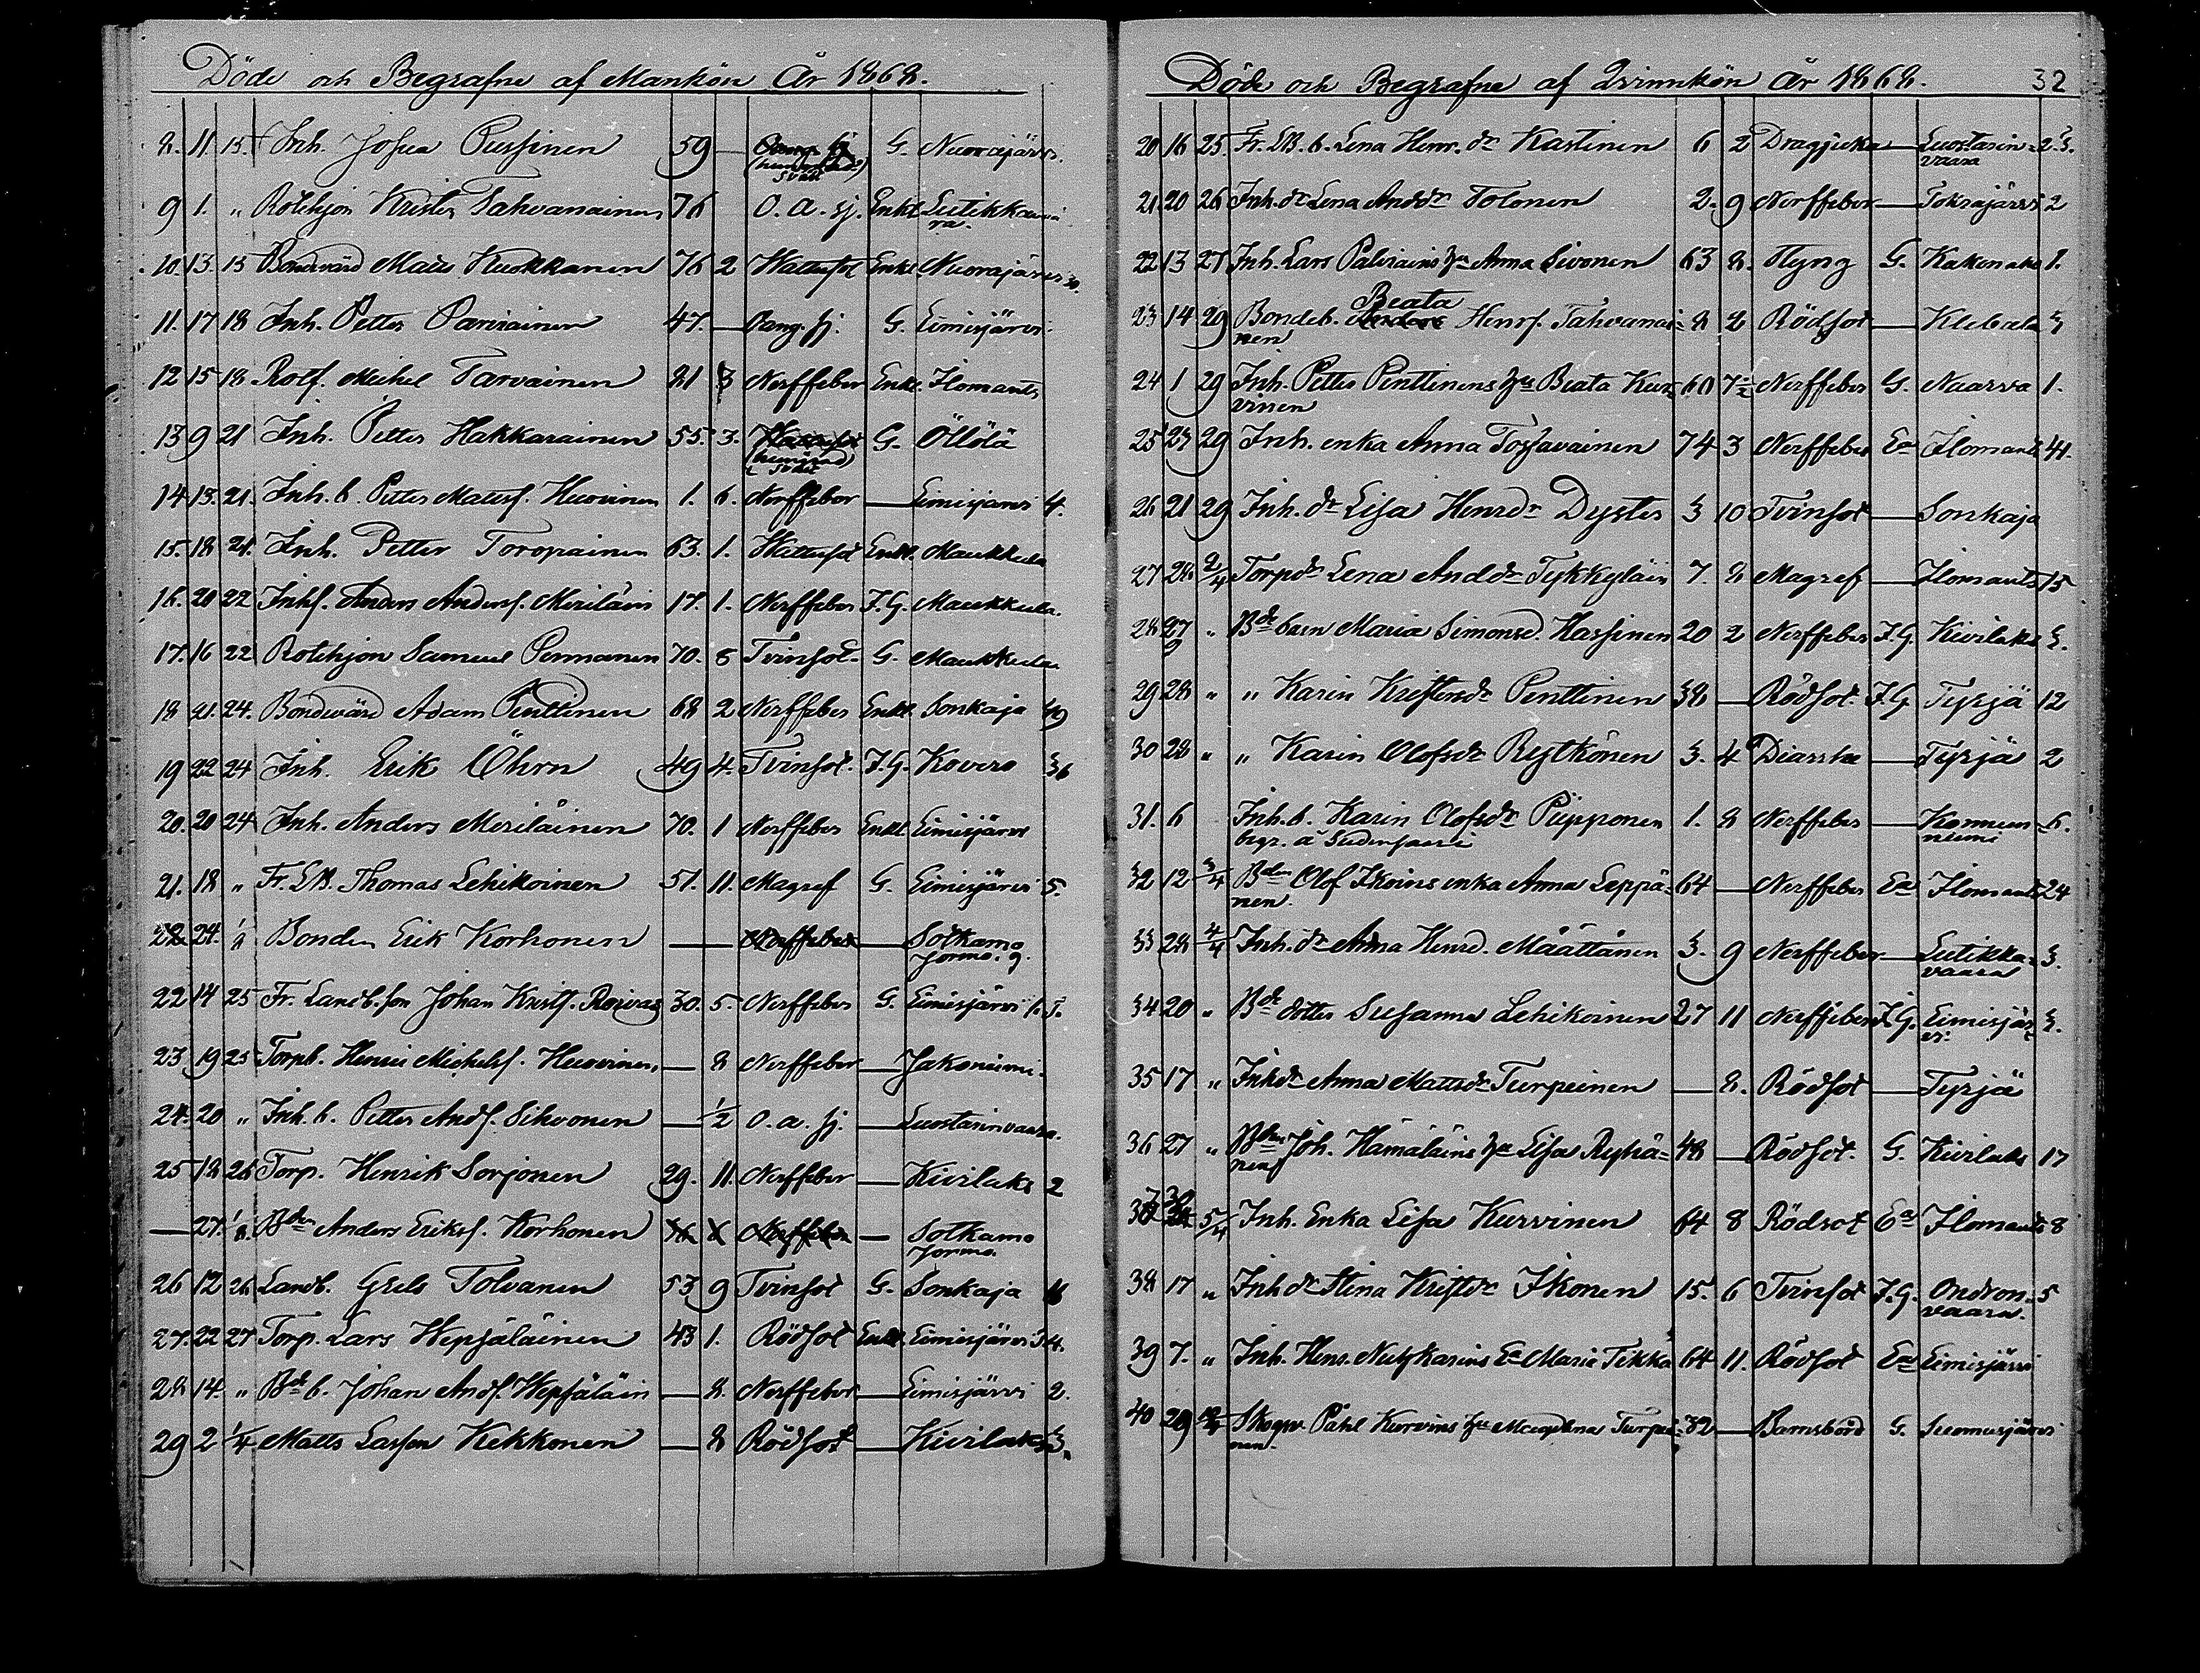 Döde och Begrafne af Mankön År 1868.
8. 11. 15. Inh. Josua Pussinen 59 — G. Nuorajärvi.
9 1. " Rotehjon Krister Tahvanainen 76 O. a. sj. Enkl. Leitikkavaa
ra.
10. 13. 15 Bondevärd Kuokkanen 76 2 Hattsot Enkl Nuorajärvi
11. 17 18 Inh. Petter Parviainen 47. — Bang. sj. G. Eimisjärvi
12 15 18 Rotf. Michel Tarvainen 81 3 Nerffeber Enkl. Ilomants
13 9 21 Inh. Petter Hakkarainen 55. 3. G. Öllölä
14 13. 21. Inh. b. Petter Matsf. Huovinen 1. 6. Nerffeber — Eimisjärvi 4.
15. 18 21. Inh. Petter Toropainen 63. 1. Hattsot Enkl. Maukkula
16. 20 22 Inhf. Anders Andersf. Meriläin 17. 1. Nerffeber J. G. Maukkula.
17. 16 22 Rotehjon Samuel Pennanen 70. 8 Tvinsot G. Maukkula
18 21. 24. Bondevärd Adam Penttinen 68 2 Nerffeber Enkl. Sonkaja 49
19 22 24 Inh. Erik Öhrn 49 4. Tvinsot. J. G. Kovero 36
20. 20 24 Inh. Anders Meriläinen 70. 1 Nerffeber Enkl. Eimisjärvi
21. 18 " Fr. LB. Thomas Lehikoinen 51. 11. Magref G. Eimisjärvi 5.
22. 24. Bonden Erik Korhonen — Nerffeber — Sotkamo
Jormo. 9.
22 14 25 Fr. Landb. son Johan Kristf. Roivas 30. 5. Nerffeber G. Eimisjärvi
23 19 25 Torpb. Henric Michelsf. Huovinen — 8 Nerffeber — Jakoniemi.
24. 20 " Inh. b. Petter Andf. Sihvonen — 1/2 O. a. sj. — Luostarinvaara.
25 18 26 Torp. Henrik Sorjonen 29. 11. Nerffeber — Kivilaks 2
— 27. Bden Anders Eriksf. Korhonen Nerffeber — Sotkamo
Jormo.
26 12 26 Landb. Grels Tolvanen 53 9 Tvinsot G. Sonkaja
27. 22 27 Torp. Lars Hepsäläinen 43 1. Rödsot Enkl. Eimisjärvi 4.
28 14. " Bde b. Johan Andf. Hepsäläin — 8. Nerffeber — Eimisjärvi 2.
29 2 1/4 Matts Larsson Kekkonen — 8 Rödsot — Kivilaks 3.
Döde och Begrafne af Qvinnkön År 1868. 32
20 16 25. Fr. LB. b. Lena Henr. dr Kastinen 6 2 Dragsjuka — Luostarin-
vaara
21. 20 26 Inh. dr Lena Anddr Tolonen 2. 9 Nerffeber — Tokrajärvi 2
22 13 27 Inh. Lars hu Anna Sivonen 63 8. G. Kakonaho 1.
Beata
23 14 29 Bondeb. Henrf. Tahvanai- 8 2 Rödsot —
nen
24 1 29 Inh. Petter Penttinens hu Beata Kur- 60 Nerffeber G. Naarva 1.
vinen
25 23 29 Inh. enka Anna Torsavainen 74 3 Nerffeber Ea Ilomants 41.
26 21 29 Inh. dr Lisa Henrdr Dyster 3 10 Tvinsot — Sonkaja
27 28 2/4 Torpdr Lena Anddr Tykkyläin 7. 8 Magref — Ilomants 15
28 27 " Bde barn Maria Simonsd. Hassinen 20 2 Nerffeber J. G. Kivilaks 3.
29 28 " " Karin Kristersdr Penttinen 38 — Rödsot. J. G. Tyrjä 12
30 28 " " Karin Olofsdr Rytkönen 3. 4 Diarrhe — Tyrjä 2
31. 6 Inh. b. Karin Olofsdr Piipponen 1. 8 Nerffeber — Konnun- 6.
begr. å niemi
32 12 3/4 Bden Olof Ikoins enka Anna Leppä- 64 — Nerffeber Ea Ilomants 24
nen.
33 28 4/4 Inh. dr Anna Henrd. Määttänen 3. 9 Nerffeber — Leitikka- 3.
vaara
34 20 " Bde dotter Susanna Lehikoinen 27 11 Nerffeber J. G. Eimisjär- 3.
vi.
35 17 " Inhdr Anna Mattsdr Turpeinen — 8. Rödsot — Tyrjä
36 27 " Bden Joh. Hämäläins hu Lisa Ryhä- 48 — Rödsot. G. Kivilaks 17
nen
37 5/4 Inh. Enka Lisa Kurvinen 64 8 Rödsot Ea Ilomants 8
38 17 " Inh dr Stina Kristdr Ikonen 15. 6 Tvinsot J. G. Ondron- 5
vaara.
39 7. " Inh. Henr. Ea Maria Tikka 64 11. Rödsot Ea Eimisjärvi
40 29 Skogsv. Påhl Kurvins hu Magdlena Turpei- 32 — Barnsbörd G. Luomusjärvi
nen.